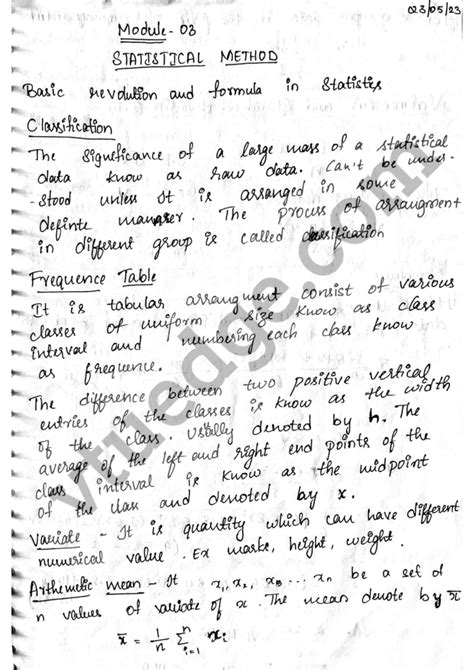 023/05/23
Module-03
STATISTICAL METHOD
Basic revolution and formula in Statistics
Classification
The significance of a large mass of a statistical
data know as raw data. Can't be under-
-stood unless it is arranged in some
definte manner. The process of arrangment
in different group is called classification
Frequence Table
It is tabular arrangment consist of various
classes of uniform size know as class
interval and numbering each class know
as frequence.
The difference between two positive vertical
entries of the classes is know as the width
of the class. Usually denoted by h. The
average of the left and right end points of the
class interval is know as the midpoint
of the class and denoted by x.
Variate - It is quantity which can have different
numerical value. Ex marks, height, weight.
Arthemetic mean - It x₁, x₂, x₃ ... xₙ be a set of
n values of variate of x. The mean denote by x̄
x̄ = 1/n Σⁿᵢ₌₁ xᵢ
vtuedge.com